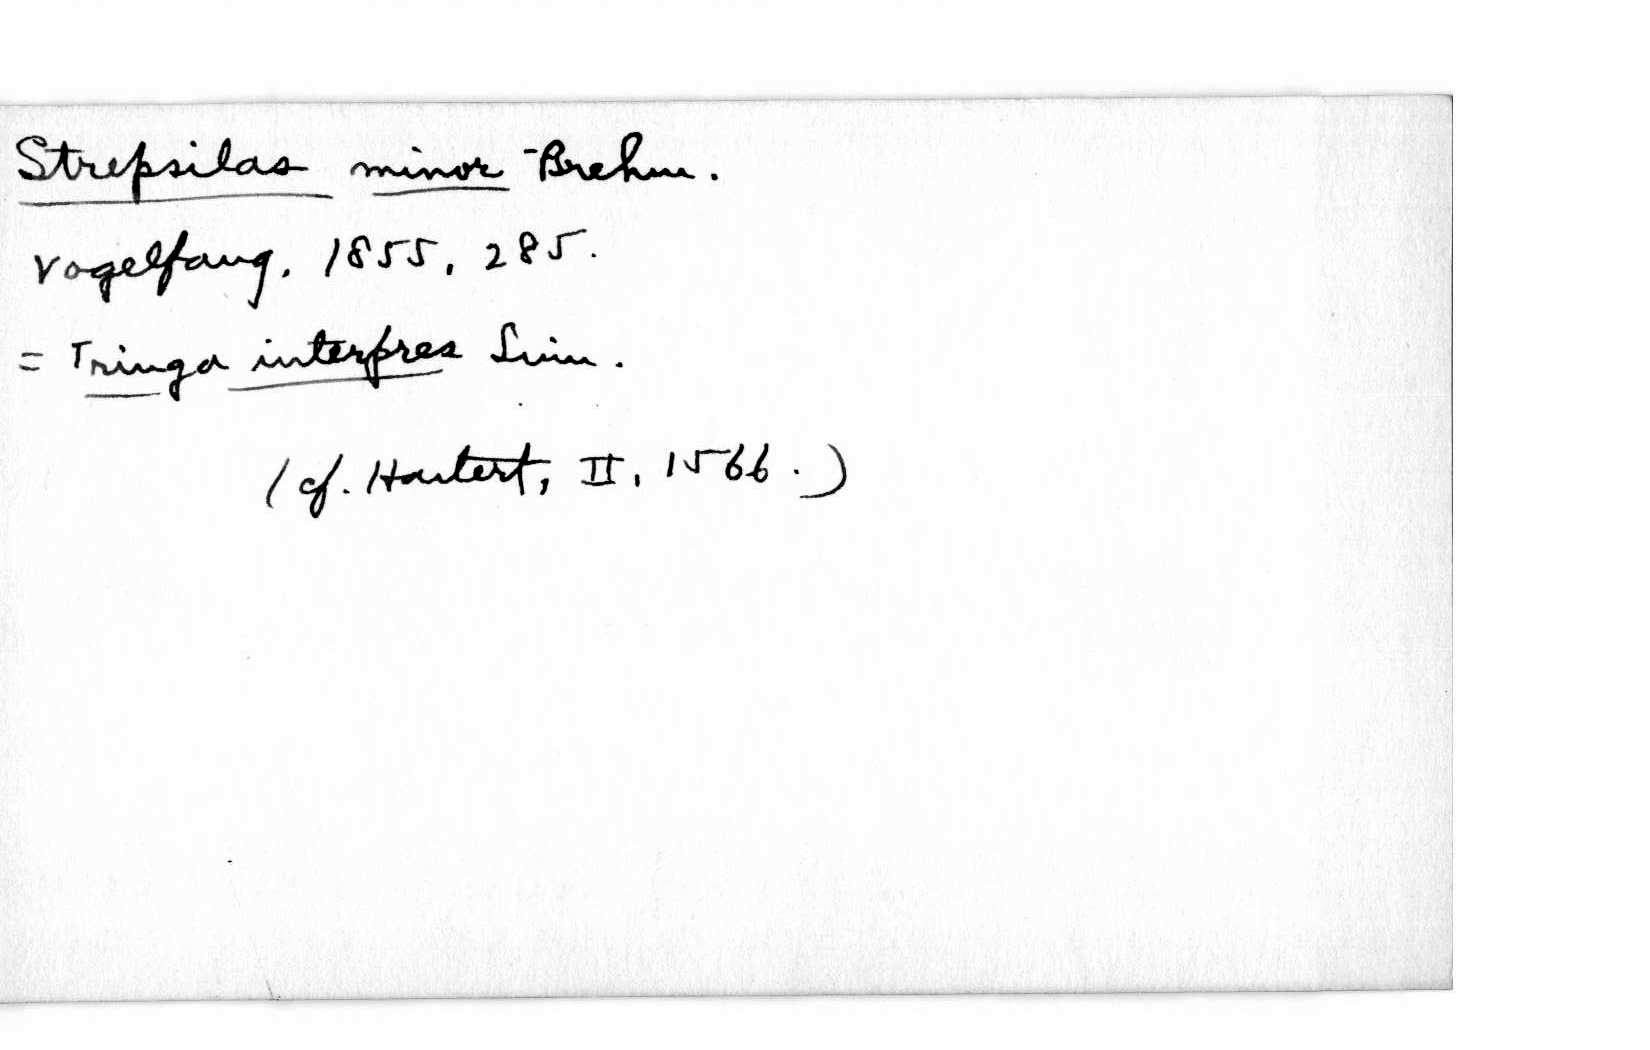 Strepsilas minor Brehm.
Vogelfang, 1855, 285.
= Tringa interpres Linn.
(cf. Hartert, II, 1566.)